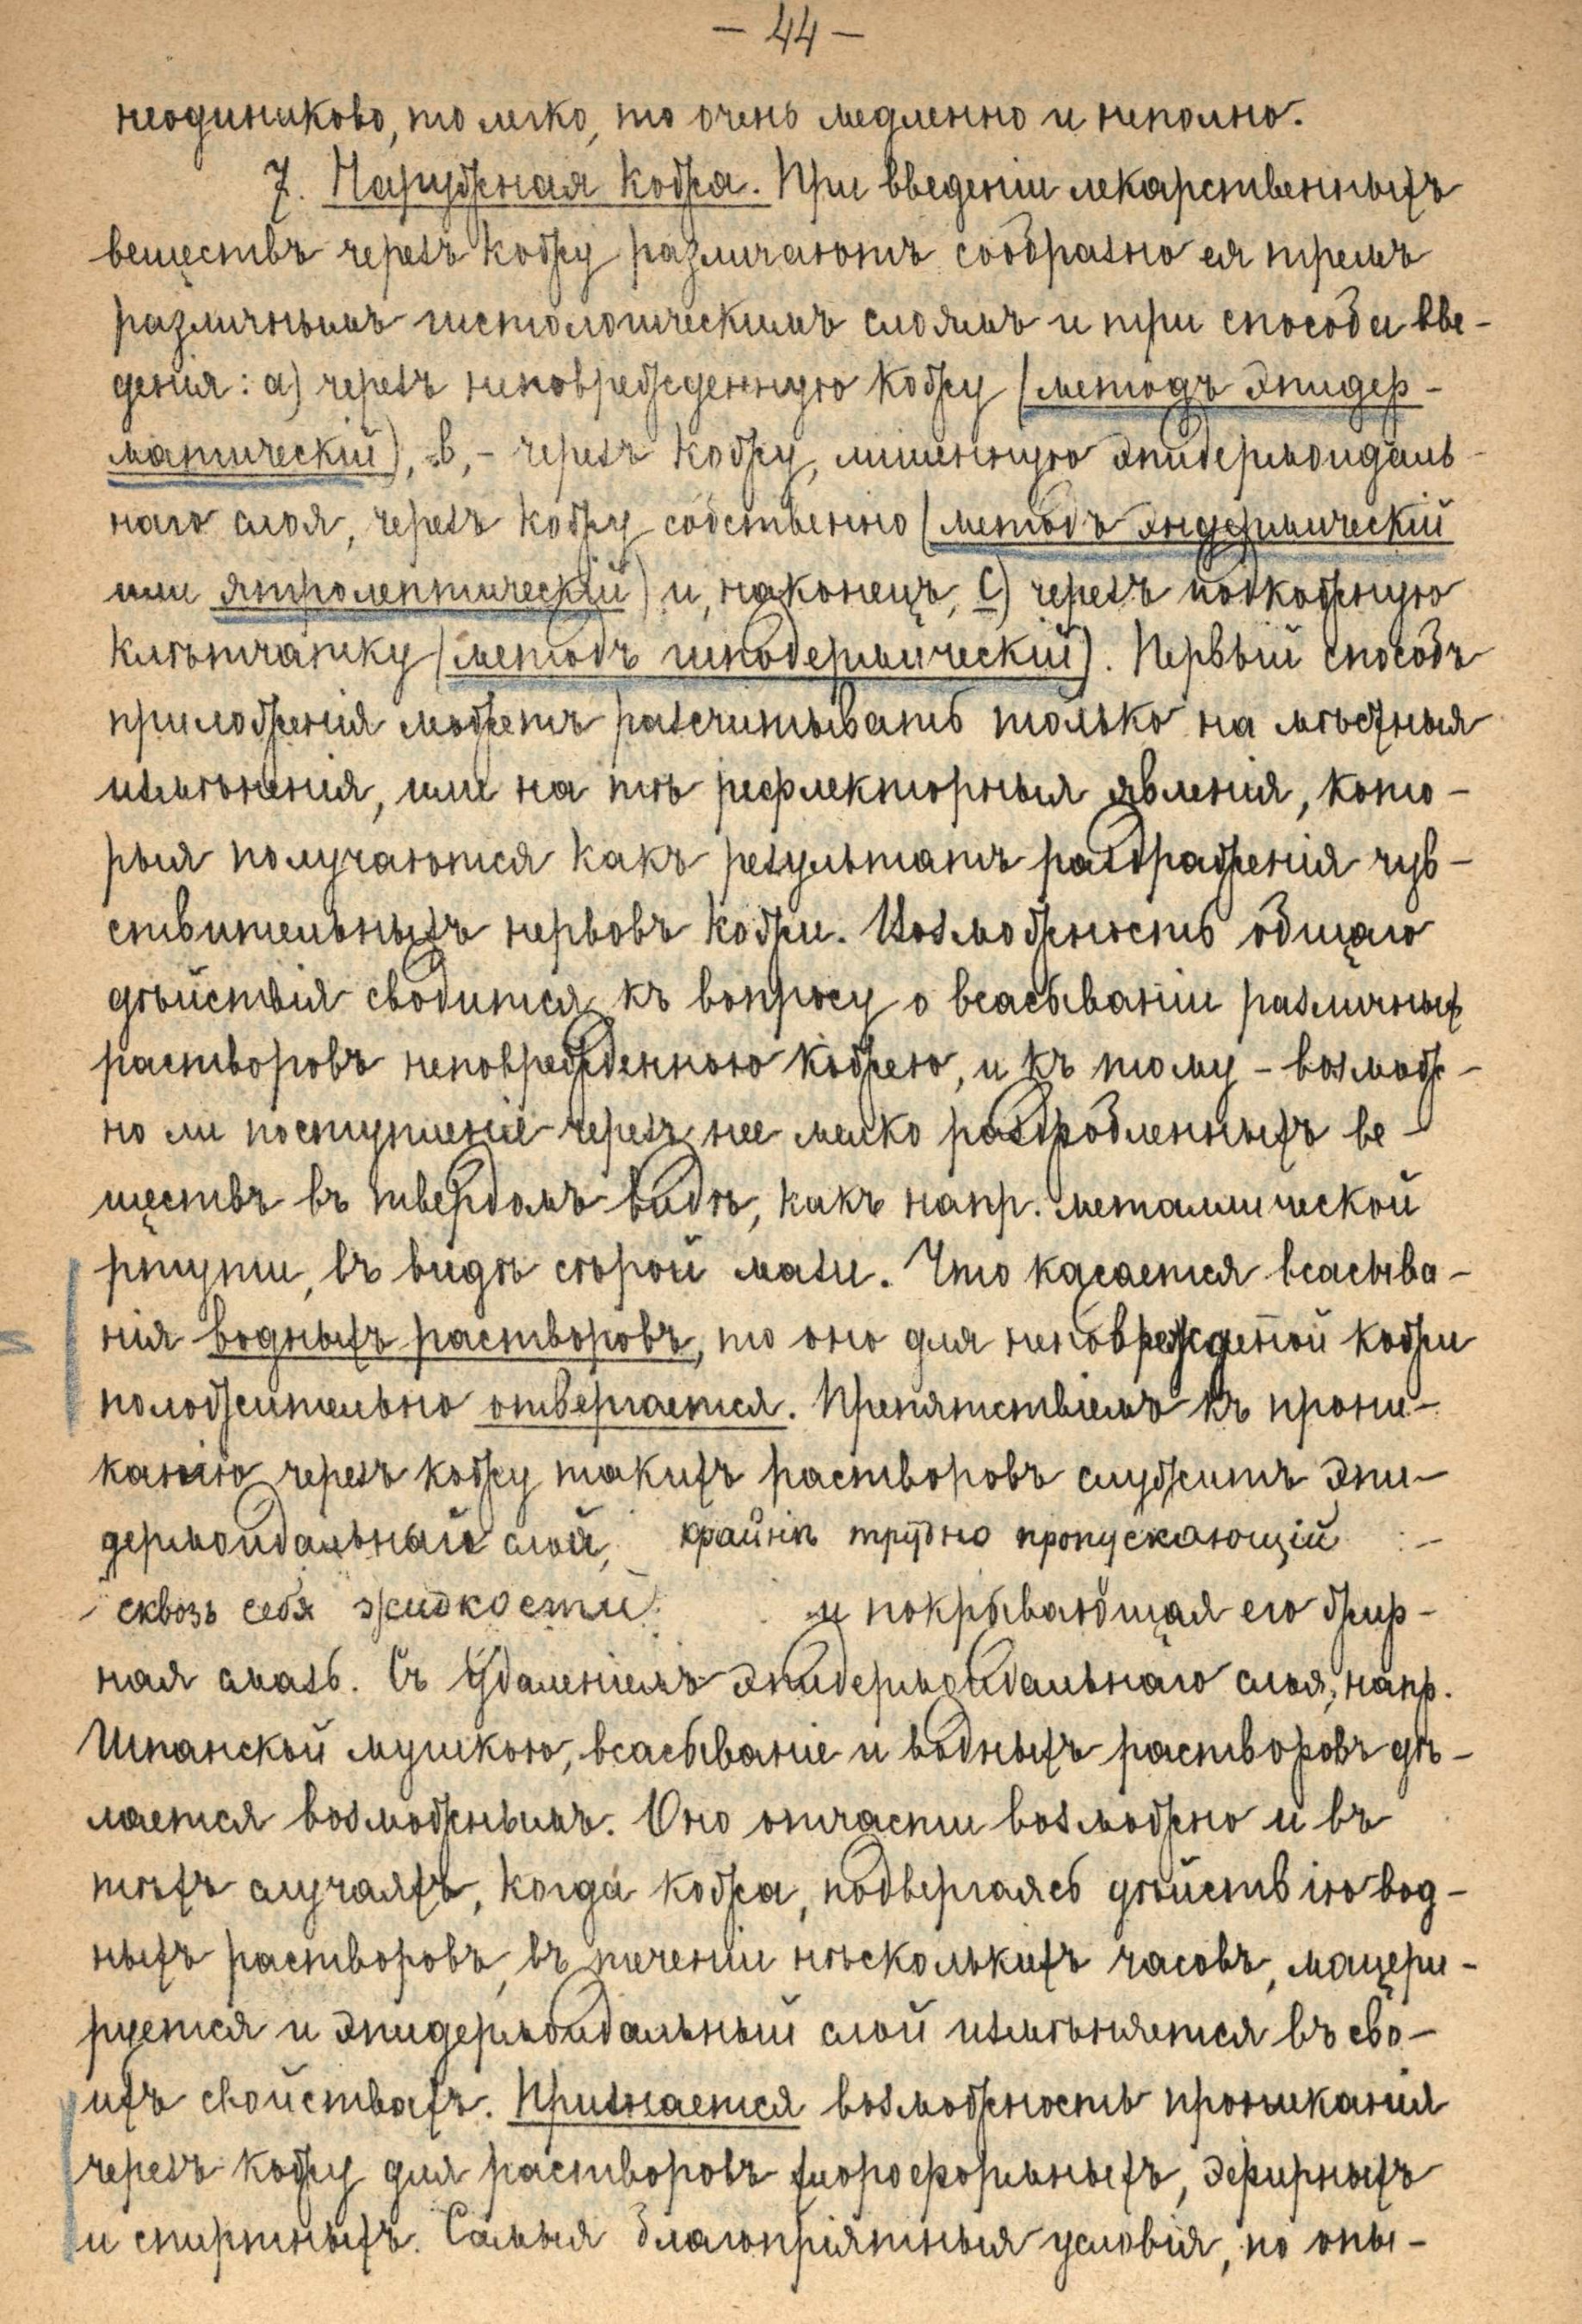 — 44 —
неодинаково, то легко, то очень медленно и неполно.
7. Наружная кожа. При введеніи лекарственныхъ
веществъ черезъ кожу различаютъ сообразно ея тремъ
различнымъ гистологическимъ слоямъ и три способа вве-
денія: а) черезъ неповрежденную кожу (методъ эпидер-
матическій), в,- черезъ кожу, лишенную эпидермоидаль-
наго слоя, черезъ кожу собственно (методъ эндермическій
или ятролептическій) и, наконецъ, с) черезъ подкожную
клѣтчатку (методъ гиподермическій). Первый способъ
приложенія можетъ расчитывать только на мѣстныя
измѣненія, или на тѣ рефлекторныя явленія, кото-
рыя получаются какъ результатъ раздраженія чув-
ствительныхъ нервовъ кожи. Возможность общаго
дѣйствія сводится къ вопросу о всасываніи различныхъ
растворовъ неповрежденною кожею, и къ тому - возмож-
но ли поступленіе черезъ нее мелко раздробленныхъ ве-
ществъ въ твердомъ видѣ, какъ напр. металлической
ртути, въ видѣ сѣрой мази. Что касается всасыва-
нія водныхъ растворовъ, то оно для неповрежденой кожи
положительно отвергается. Препятствіемъ къ прони-
канію черезъ кожу такихъ растворовъ служитъ эпи-
дермоидальный слой, крайнѣ трудно пропускающій
сквозь себя жидкости и покрывающая его жир-
ная мазь. Съ удаленіемъ эпидермоидальнаго слоя, напр.
Шпанской мушкою, всасываніе и водныхъ растворовъ дѣ-
лается возможнымъ. Оно отчасти возможно и въ
тѣхъ случаяхъ, когда кожа, подвергаясь дѣйствію вод-
ныхъ растворовъ, въ теченіи нѣсколькихъ часовъ, мацери-
руется и эпидермоидальный слой измѣняется въ сво-
ихъ свойствахъ. Признается возможность проникания
черезъ кожу для растворовъ хлороформныхъ, эфирныхъ
и спиртныхъ. Самыя благопріятныя условія, по опы-